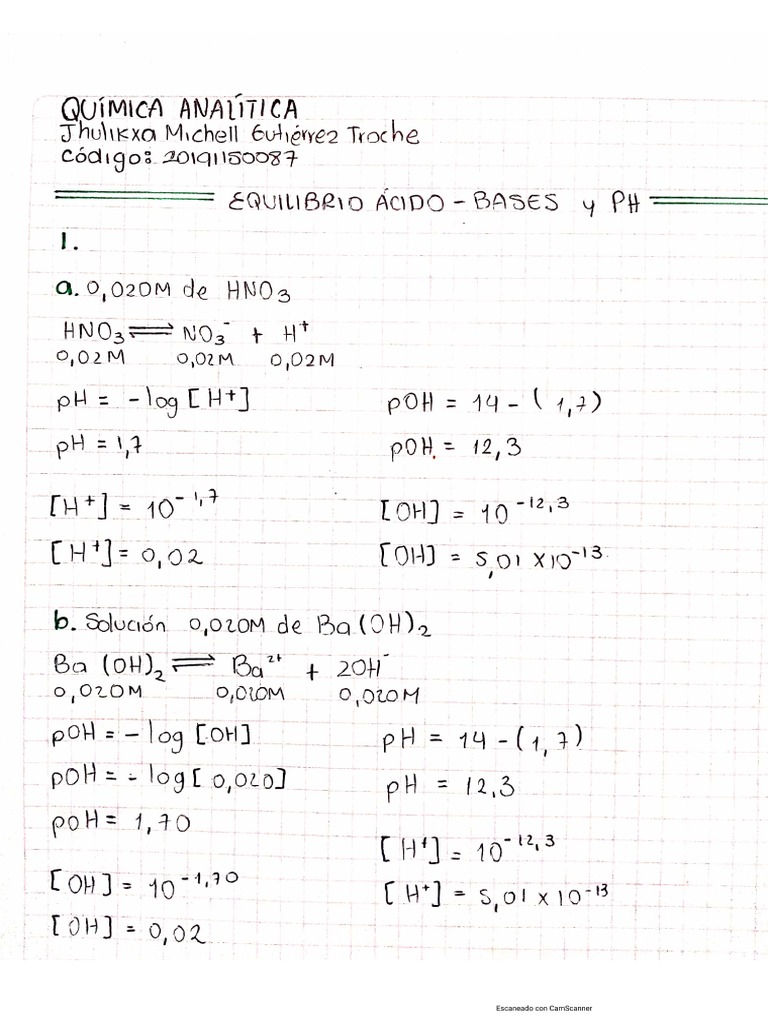 QUÍMICA ANALÍTICA
Jhulikxa Michell Gutiérrez Troche
Código: 20191150087
EQUILIBRIO ÁCIDO - BASES y PH
1.
a. 0,020M de HNO₃
HNO₃ ⇌ NO₃⁻ + H⁺
0,02M 0,02M 0,02M
pH = -log [H+]
pOH = 14 - (1,7)
pH = 1,7
pOH. = 12,3
[H⁺] = 10⁻¹,⁷
[OH] = 10⁻¹²,³
[H⁺] = 0,02
[OH] = 5,01 x 10⁻¹³
b. Solución 0,020M de Ba(OH)₂
Ba (OH)₂ ⇌ Ba²⁺ + 2OH⁻
0,020M 0,020M 0,020M
pOH = -log [OH]
pH = 14 - (1,7)
pOH = -log [0,020]
pH = 12,3
pOH = 1,70
[H⁺] = 10⁻¹²,³
[OH] = 10⁻¹,⁷⁰
[H⁺] = 5,01 x 10⁻¹³
[OH] = 0,02
Escaneado con CamScanner